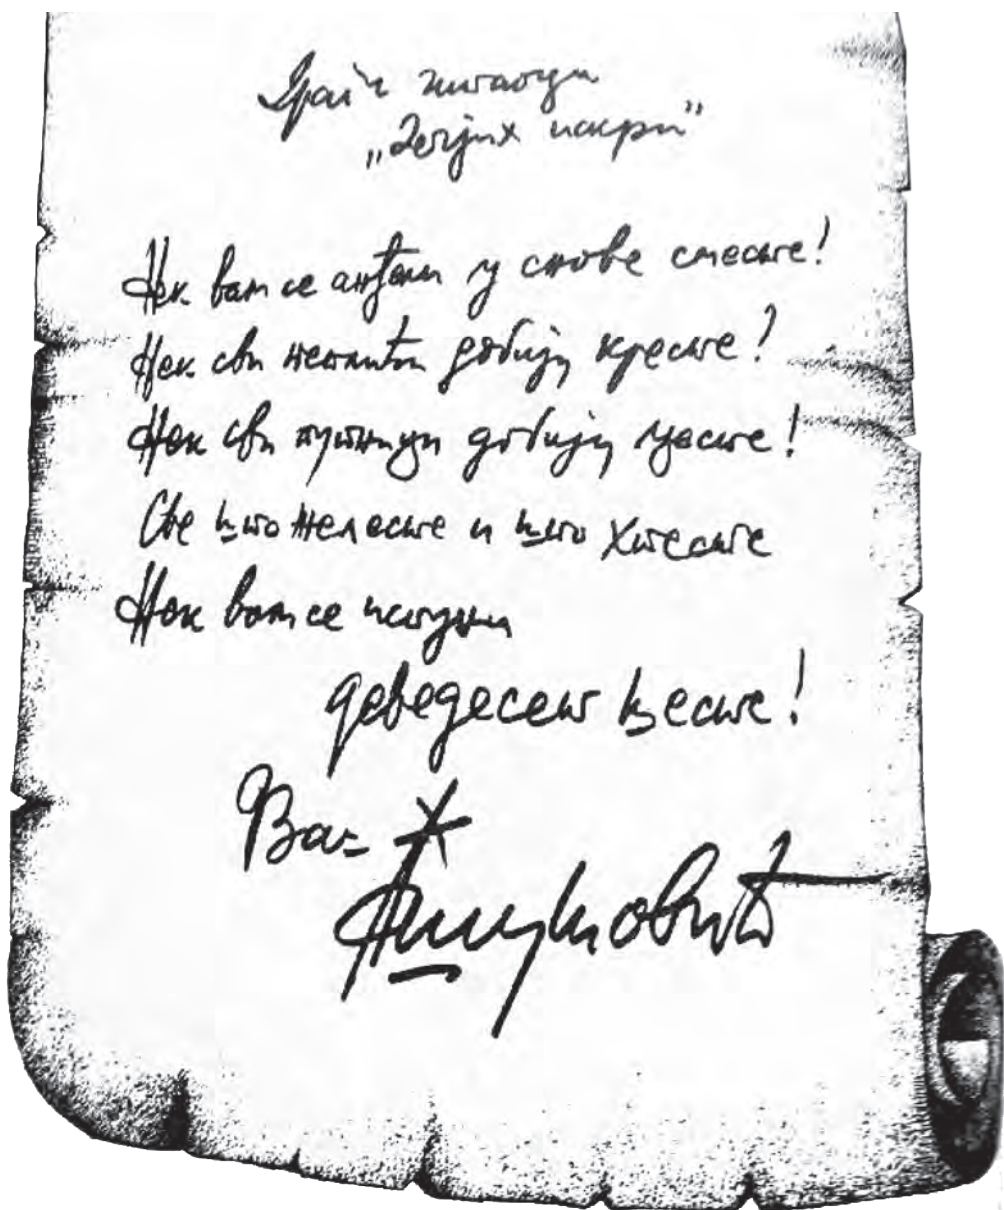 Драги читаоци
„Дечјих искри"
Нек вам се анђели у снове сместе!
Нек сви петлићи добију кресте!
Нек сви путници добију цесте!
Све што желесте и што хтесте
Нек вам се испуни
деведесет шесте!
Ваш
Ршумовић